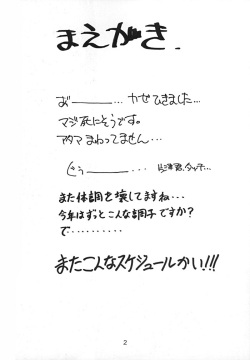 まえがき.
お———… かぜひきました…
マジ死にそうです。
アタマ まわってません…
また体調を壊してますね…
今年はずっとこんな調子ですか?
で………
またこんなスケジュールかい!!!
2